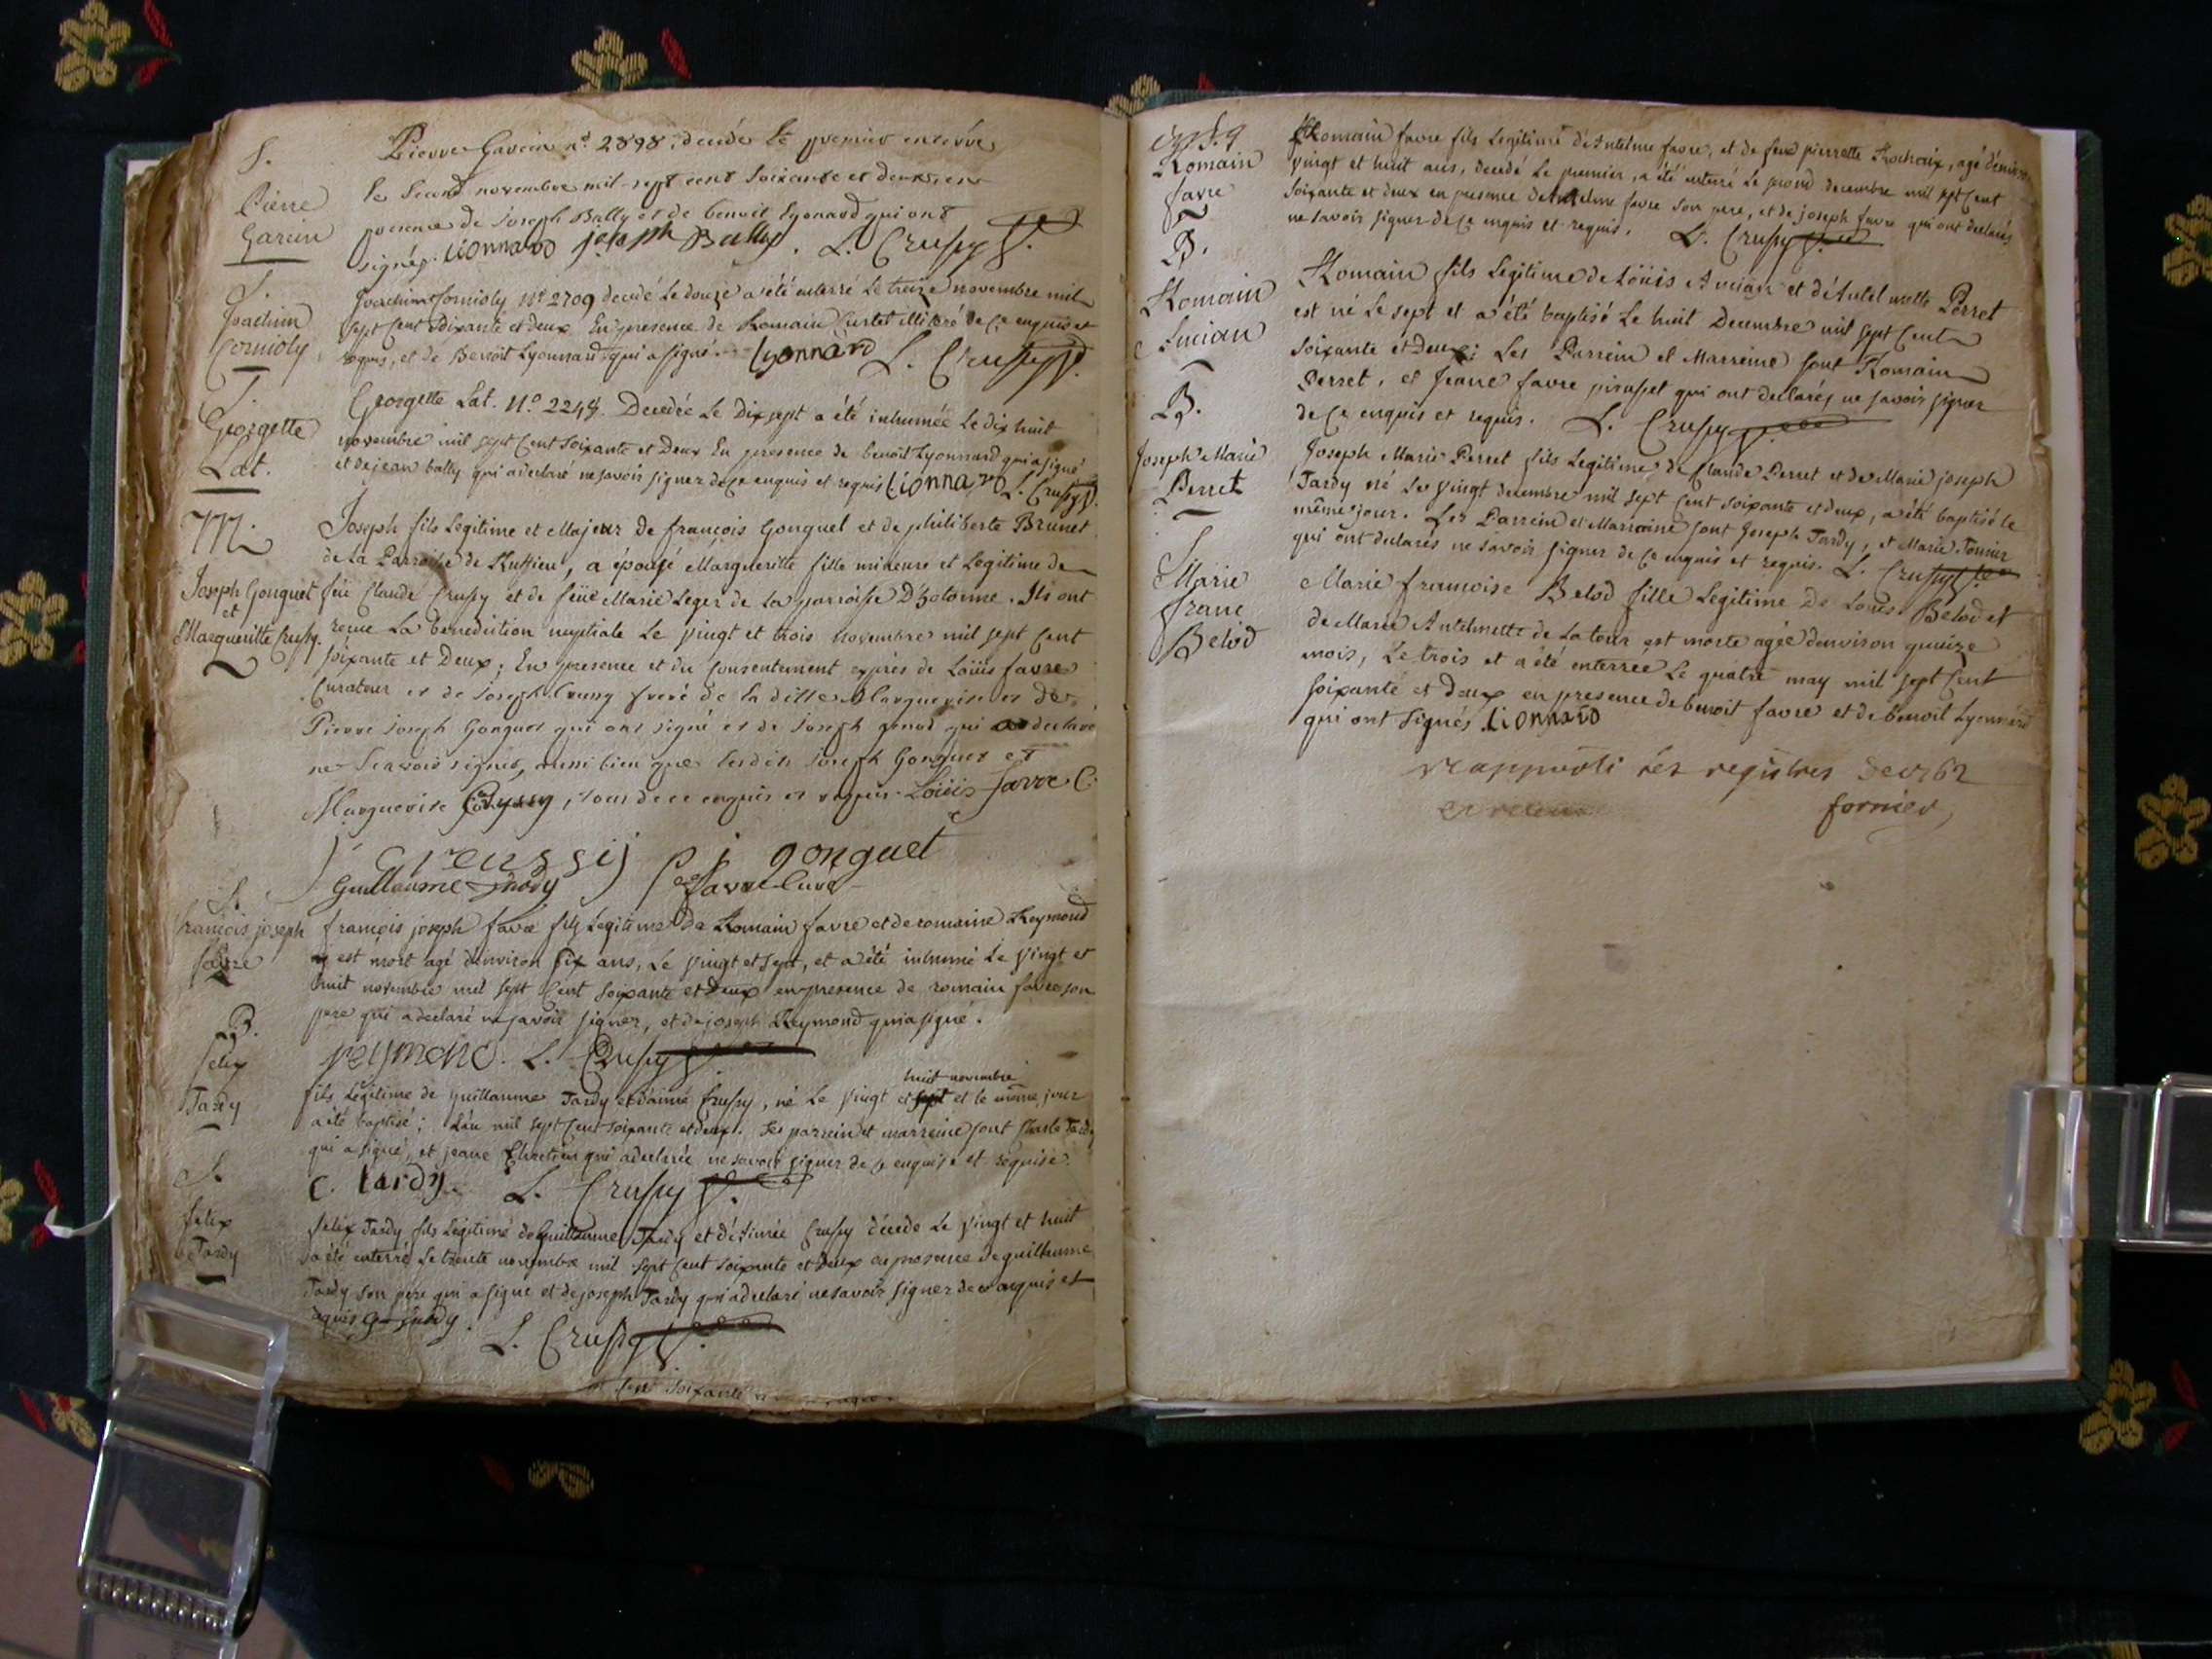 S.
Pierre
Garcin
Pierre Garcin n.o 2898. decédé le premier enterré
le second novembre mil-sept cent soixante et deux en
presence de Joseph Bally et de benoit Lyonard qui ont
signés. Lionnard joseph Bally. L. Crussy V.
S.
Joachim
Cornioly
Joachim Cornioly N.o 2709 decedé le douze a été enterré le treize novembre mil
sept cent soixante et deux En presence de Romain Curtet illiteré de ce enquis et
requis, et de Benoit Lyonnard qui a signé. Lyonnard L. Crussy V.
S.
Georgette
Lat.
Georgette Lat. N.o 2248. Decedée Le Dix sept a été inhumée Le dix huit
novembre mil sept cent soixante et Deux En presence de benoit Lyonnard qui a signé
et de jean bally qui a declaré ne savoir signer de ce enquis et requis Lionnard L. Crussy V.
M.
Joseph Gonguet
et
Margueritte Crussy.
Joseph fils Legitime et Majeur de françois Gonguet et de philiberte Brunet
de La Parroisse de Ruffieu, a épousé Margueritte fille mineure et Legitime de
feu Claude Crussy et de feüe Marie Leger de la parroisse D'hotonne. Ils ont
reçue La benediction nuptiale Le vingt et trois novembre mil sept cent
soixante et Deux; En presence et du consentement exprès de Loüis favre
Curateur et de Joseph Crussy frere de la ditte Marguerite et de
Pierre Joseph Gonguet qui ont signé et de Joseph qui a declaré
ne scavoir signer, aussi bien que lesdits Joseph Gonguet et
Marguerite Crussy, tous de ce enquis et requis. Loüis favre C.
J. Creussij p j gonguet
Guillaume favre Curé
S.
francois joseph
favre
françois joseph favre fils Legitime de Romain favre et de romaine Reymond
est mort agé d'environ six ans, Le vingt et sept, et a été inhumé Le vingt et
huit novembre mil sept cent soixante et Deux en presence de romain favre son
pere qui a declaré ne savoir signer, et de joseph Reymond qui a signé.
reymond. L. Crussy V.
B.
felix
Tardy
huit novembre
fils Legitime de guillaume Tardy et d'aimé Crussy, né Le vingt et sept et le même jour
a été baptisé; L'an mil sept cent soixante et deux. Les parrein et marreine sont Charle Tardy
qui a signé, et jeane Chretien qui a declarée ne savoir signer de ce enquise et requise.
C. tardy. L. Crussy V.
S.
felix
Tardy
felix Tardy fils Legitime de Guillaume Tardy et d'Aimée Crussy décede Le vingt et huit
a été enterré Le trente novembre mil sept cent soixante et deux en presence de guillaume
Tardy son pere qui a signé et de joseph Tardy qui a declaré ne savoir signer de ce enquis et
requis G tardy. L. Crussy V.
cent soixante
Romain
favre
Romain favre fils Legitime d'Antelme favre, et de feue pierrette Rochaix, agé d'environ
vingt et huit ans, decedé Le premier, a été enterré Le second decembre mil sept cent
soixante et deux en presence de Antelme favre son pere, et de joseph favre qui ont declarés
ne savoir signer de ce enquis et requis. L. Crussy V.
B.
Romain
Lucian
Romain fils Legitime de Loüis Lucian et d'Antelmette Perret
est né Le sept et a été baptisé Le huit Decembre mil sept cent
soixante et deux; Les Parrein et Marreine sont Romain
Perret, et Jeane favre qui ont declarés ne savoir signer
de ce enquis et requis. L. Crussy V.
B.
Joseph Marie
Perret
Joseph Marie Perret fils Legitime de Claude Perret et de Marie joseph
Tardy né Le vingt decembre mil sept cent soixante et deux, a été baptisé le
même jour. Les Parrein et Marraine sont Joseph Tardy, et Marie Tonnier
qui ont declarés ne savoir signer de ce enquis et requis. L. Crussy V.
S.
Marie
franc
Belod
Marie francoise Belod fille Legitime de Louis Belod et
de Marie Antelmette de La tour est morte agée d'environ quinze
mois, Le trois et a été enterree Le quatre may mil sept cent
soixante et deux en presence de benoit favre et de benoit Lyonnard
qui ont signés Lionnard
rapporté les registres de 1762
fornier